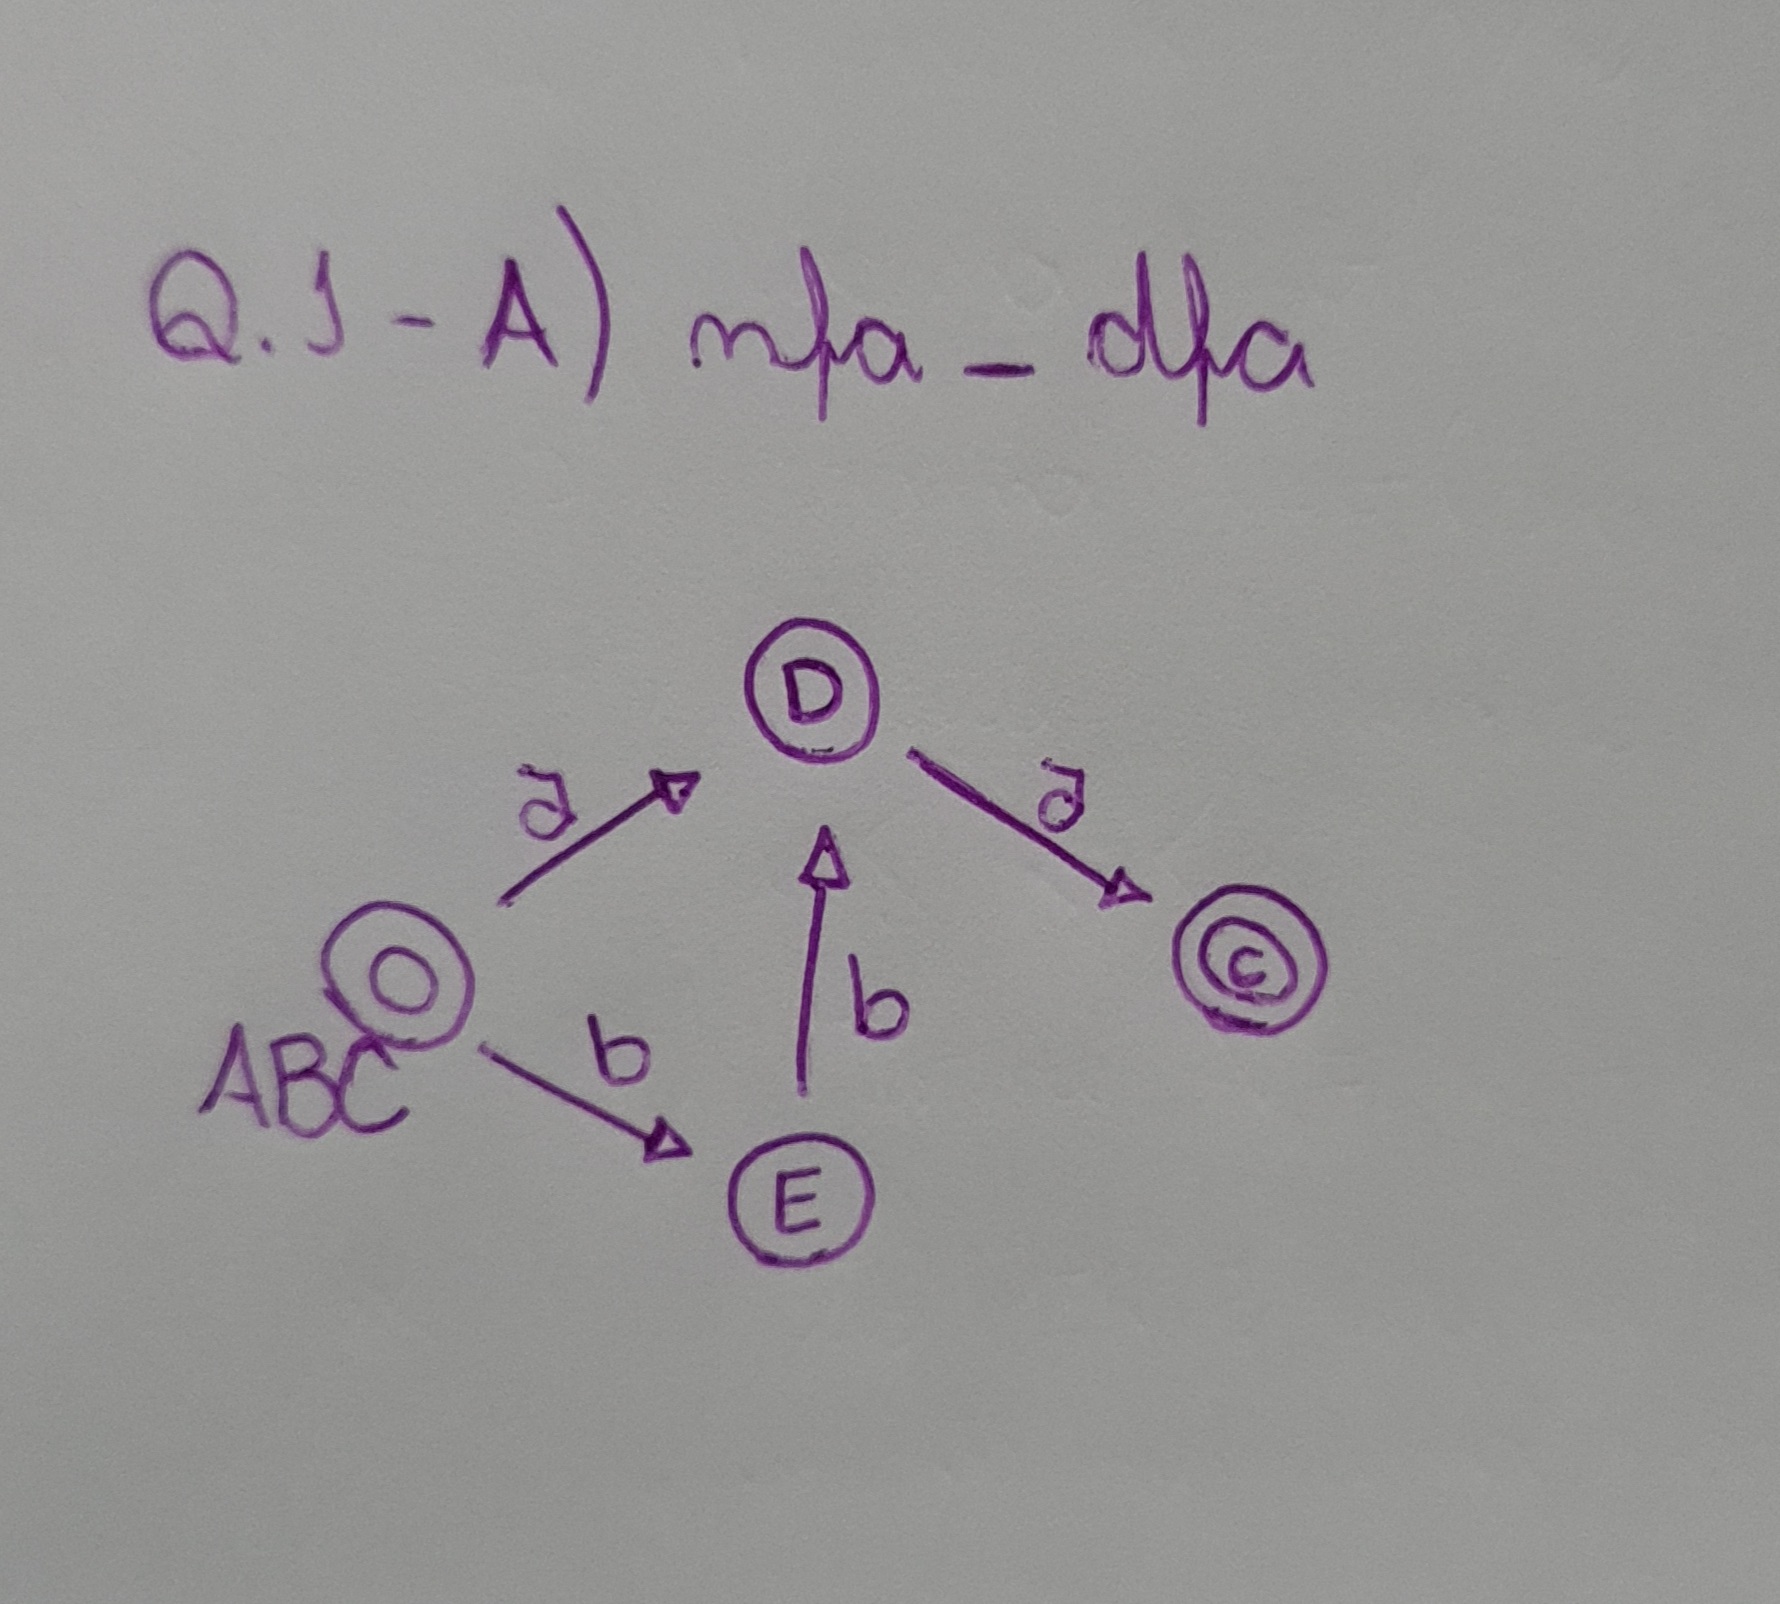 Q.1-A) nfa - dfa
D
a a
C
b
ABC b
E